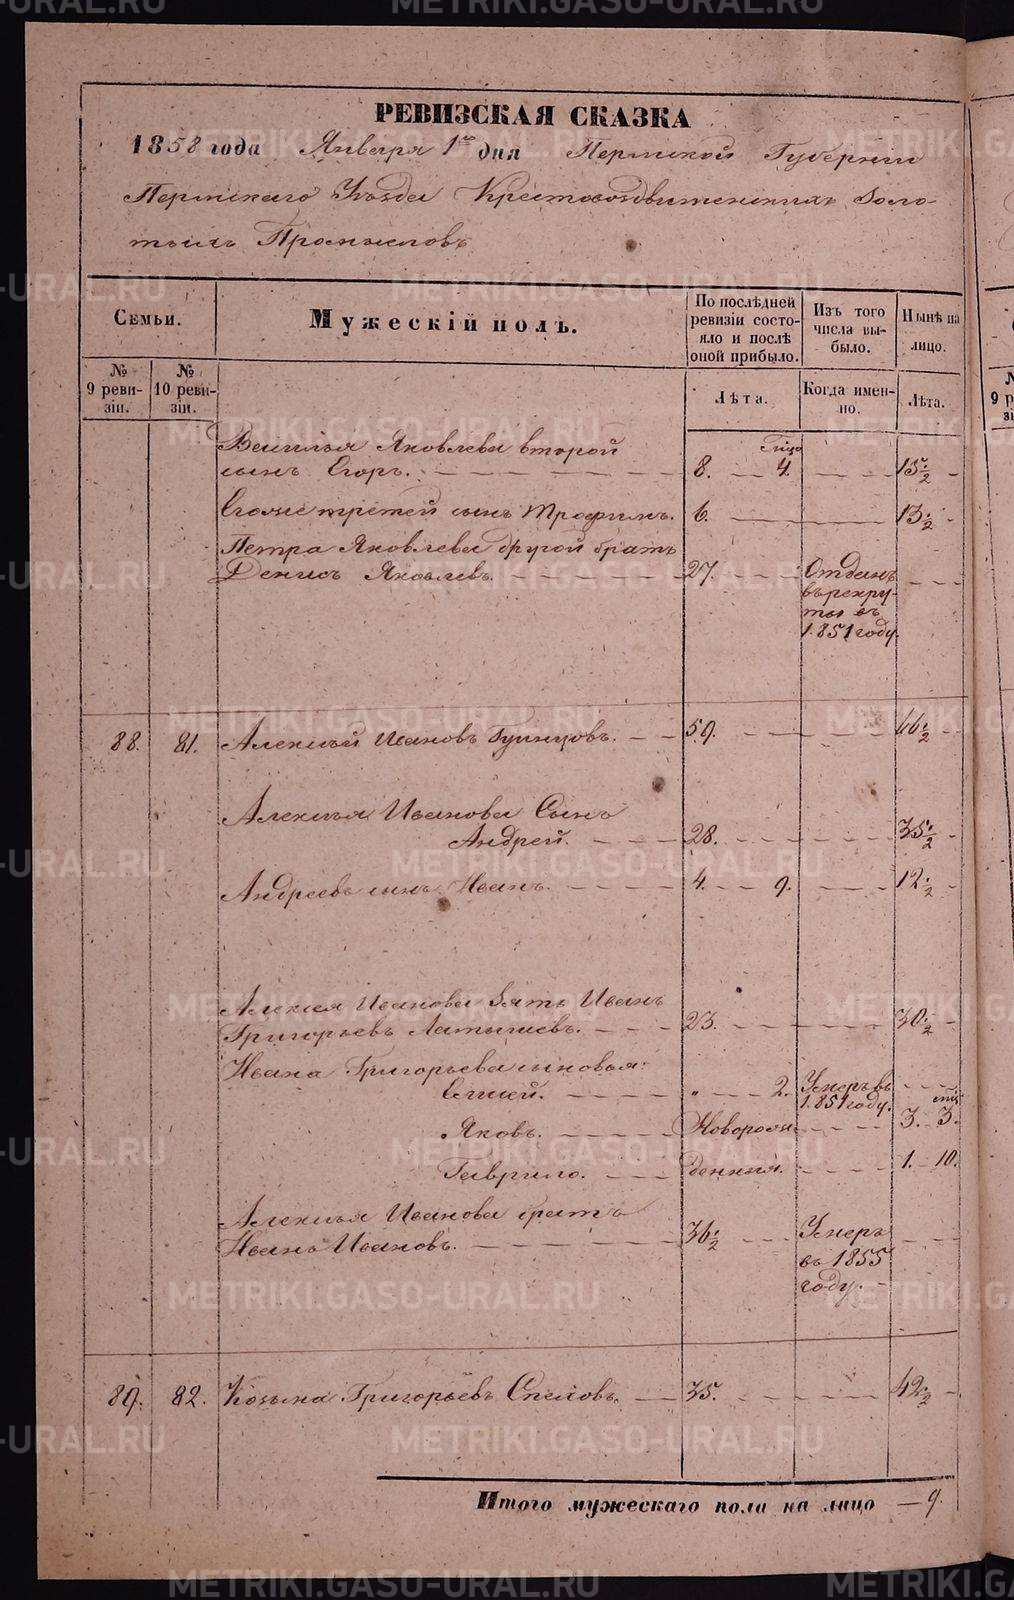 METRIKI.GASO-URAL.RU
РЕВИЗСКАЯ СКАЗКА
1858 года Января 1го дня Пермской Губернии
Пермскаго Уѣзда Крестовоздвиженскихъ Золо-
тыхъ Промысловъ
Семьи.
Мужескій полъ.
По послѣдней ревизіи состо-яло и послѣ оной прибыло.
Изъ того числа вы-было.
Нынѣ на лицо.
№ 9 реви-зіи.
№ 10 реви-зіи.
Лѣта.
Когда имен-но.
Лѣта.
Василья Яковлева второй
сынъ Егоръ. 8. 4. 15 1/2
Егоже третей сынъ Трофимъ. 6. 13 1/2
Петра Яковлева другой братъ
Денисъ Яковлевъ. 27. Отданъ
въ рекру-
ты въ
1851 году.
88. 81. Алексѣй Ивановъ 59. 66 1/2
Алексѣя Иванова Сынъ
Андрей. 28. 35 1/2
Андреевъ сынъ Иванъ. 4. 9. 12 1/2
Алексѣя Иванова Зять Иванъ
Григорьевъ Латышевъ. 23. 30 1/2
Ивана Григорьева сыновья:
Елисей. " 2. Умеръ въ
1851 году.
Яковъ. Новорож- 3. 3.
Гаврило. денныя. 1. 10.
Алексѣя Иванова братъ
Иванъ Ивановъ. 36 1/2 Умеръ
въ 1855
году.
89. 82. Козьма Григорьевъ 35. 42 1/2
Итого мужескаго пола на лицо — 9.